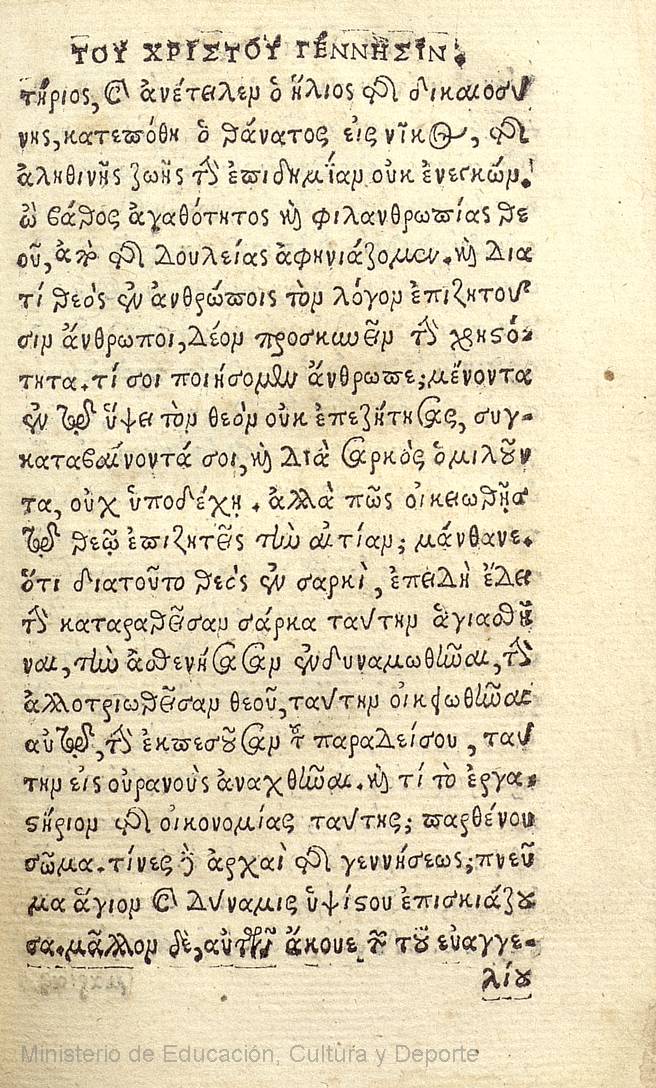 ΤΟΥ ΧΡΙΣΤΟΥ ΓΕΝΝΗΣΙΝ.
τήριος, καὶ ἀνέτειλεν ὁ ἥλιος τῆς δικαιοσύ
νης, κατεπόθη ὁ θάνατος εἰς νῖκος, τῆς
ἀληθινῆς ζωῆς τὴν ἐπιδημίαν οὐκ ἐνεγκών.
ὢ βάθος ἀγαθότητος καὶ φιλανθρωπίας θε
οῦ, ἀπὸ τῆς δουλείας ἀφηνιάζομεν. καὶ δια
τί θεὸς ἐν ἀνθρώποις τὸν λόγον ἐπιζητοῦ
σιν ἄνθρωποι, δέον προσκυνεῖν τὴν χρηστό-
τητα. τί σοι ποιήσομεν ἄνθρωπε; μένοντα
ἐν τῷ ὕψει τὸν θεὸν οὐκ ἐπεζήτησας, συγ-
καταβαίνοντά σοι, καὶ διὰ σαρκὸς ὁμιλοῦν
τα, οὐχ ὑποδέχῃ. ἀλλὰ πῶς οἰκειωθῇς
τῷ θεῷ ἐπιζητεῖς τὴν αἰτίαν; μάνθανε.
ὅτι διατοῦτο θεὸς ἐν σαρκὶ, ἐπειδὴ ἔδει
τὴν καταραθεῖσαν σάρκα ταύτην ἁγιασθῆ
ναι, τὴν ἀσθενήσασαν ἐνδυναμωθῆναι, τὴν
ἀλλοτριωθεῖσαν θεοῦ, ταύτην οἰκειωθῆναι
αὐτῷ, τὴν ἐκπεσοῦσαν τοῦ παραδείσου, ταύ
την εἰς οὐρανοὺς ἀναχθῆναι. καὶ τί τὸ ἐργα-
στήριον τῆς οἰκονομίας ταύτης; παρθένου
σῶμα. τίνες δὲ ἀρχαὶ τῆς γεννήσεως; πνεῦ
μα ἅγιον καὶ δύναμις ὑψίστου ἐπισκιάζου
σα. μᾶλλον δὲ, αὐτῶν ἄκουε τῶν τοῦ εὐαγγε-
λίου
Ministerio de Educación, Cultura y Deporte